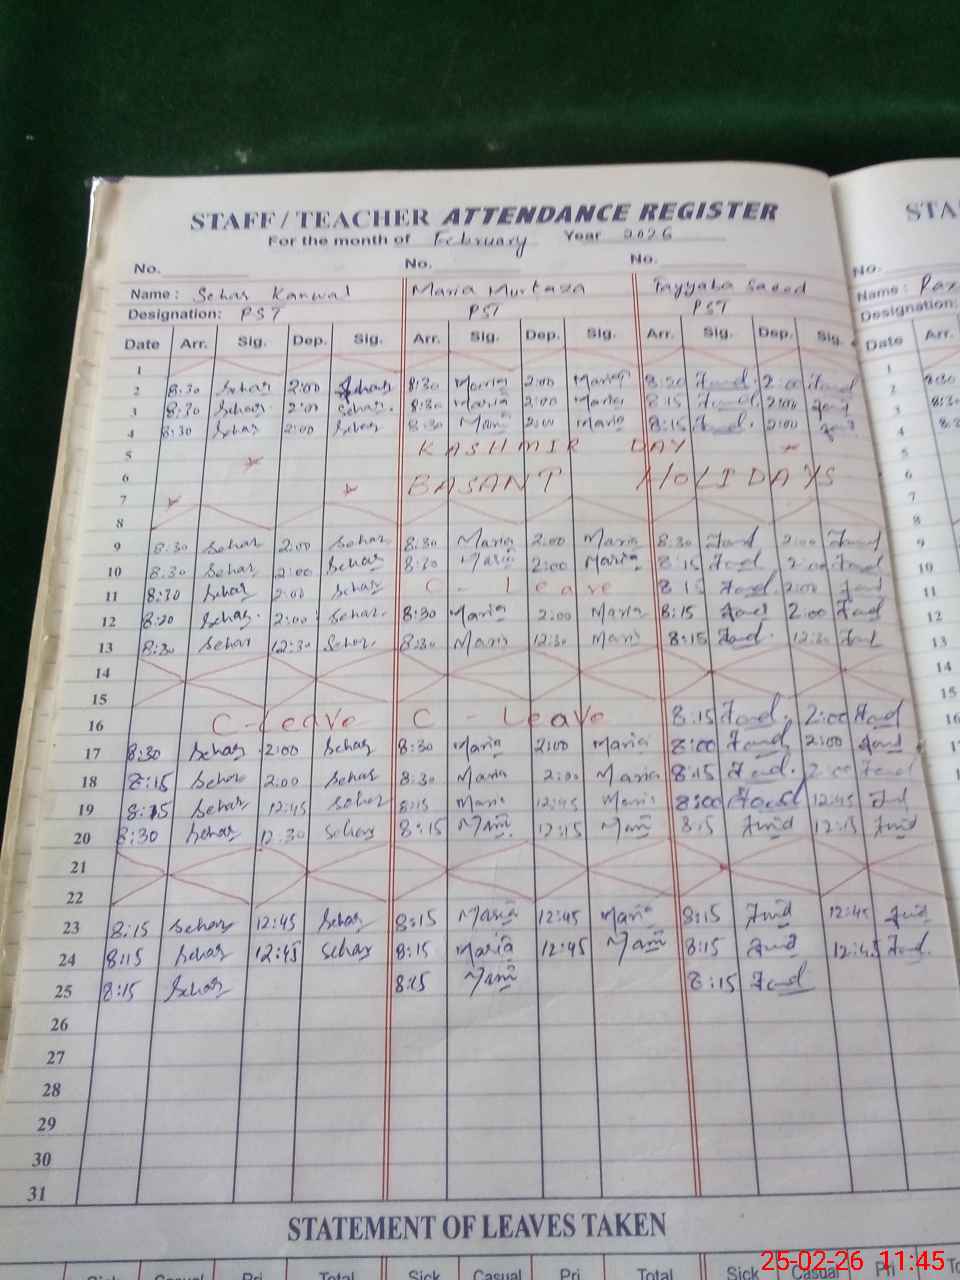 STAFF / TEACHER ATTENDANCE REGISTER STA
For the month of February Year 2026
No. No. No. No.
Name : Sehar Kanwal Maria Murtaza Tayyaba Saeed Name :
Designation : PST PST PST Designation:
Date Arr. Sig. Dep. Sig. Arr. Sig. Dep. Sig. Arr. Sig. Dep. Sig. Date Arr.
1 1
2 8:30 Sehar 2:00 Sehar 8:30 Maria 2:00 Maria 8:30 2:00 2 8:30
3 8:30 Sehar 2:00 Sehar 8:30 Maria 2:00 Maria 8:15 2:00 3 8:30
4 8:30 Sehar 2:00 Sehar 8:30 Maria 2:00 Maria 8:15 2:00 4
5 KASHMIR DAY 5
6 BASANT HOLIDAYS 6
7 7
8 8
9 8:30 Sehar 2:00 Sehar 8:30 Maria 2:00 Maria 8:30 2:00 9
10 8:30 Sehar 2:00 Sehar 8:30 Maria 2:00 Maria 8:15 2:00 10
11 8:30 Sehar 2:00 Sehar C - Leave 8:15 2:00 11
12 8:20 Sehar 2:00 Sehar 8:30 Maria 2:00 Maria 8:15 2:00 12
13 8:30 Sehar 12:30 Sehar 8:30 Maria 12:30 Maria 8:15 12:30 13
14 14
15 15
16 C-Leave C - Leave 8:15 2:00 16
17 8:30 Sehar 2:00 Sehar 8:30 Maria 2:00 Maria 8:00 2:00 17
18 8:15 Sehar 2:00 Sehar 8:30 Maria 2:00 Maria 8:15 2:00
19 8:15 Sehar 12:45 Sehar 8:15 Maria 12:45 Maria 8:00 12:45
20 8:30 Sehar 12:30 Sehar 8:15 Maria 12:15 Maria 8:15 12:15
21
22
23 8:15 Sehar 12:45 Sehar 8:15 Maria 12:45 Maria 8:15 12:45
24 8:15 Sehar 12:45 Sehar 8:15 Maria 12:45 Maria 8:15 12:45
25 8:15 Sehar 8:15 Maria 8:15
26
27
28
29
30
31
STATEMENT OF LEAVES TAKEN
Sick Casual Pri Total Sick Casual Pri Total Sick Casual Pri To
25-02-26 11:45